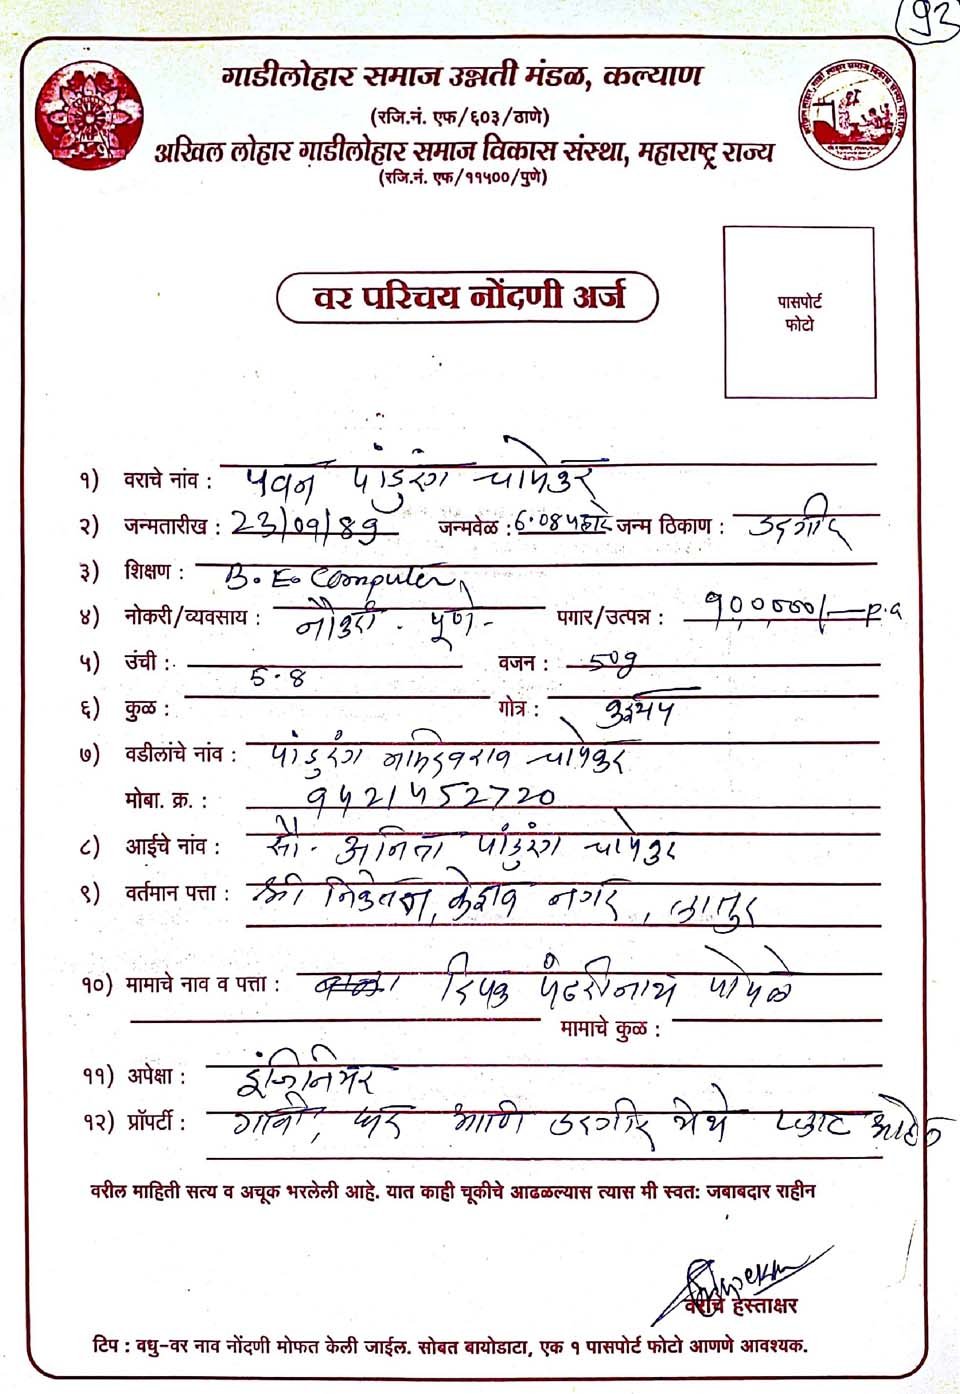 ९३
गाडीलोहार समाज उन्नती मंडळ, कल्याण
(रजि.नं. एफ/६०३/ठाणे)
अखिल लोहार गाडीलोहार समाज विकास संस्था, महाराष्ट्र राज्य
(रजि.नं. एफ/११५००/पुणे)
पासपोर्ट
फोटो
वर परिचय नोंदणी अर्ज
१) वराचे नांव : पवन पांडुरंग चापेकर
२) जन्मतारीख : 23/09/89 जन्मवेळ : 6.08 पहाटे जन्म ठिकाण : उदगीर
३) शिक्षण : B.E. Computer
४) नोकरी/व्यवसाय : नौकरी - पूणे - पगार/उत्पन्न : 900000/- p.a
५) उंची : 5.8 वजन : 50g
६) कुळ : गोत्र : कश्यप
७) वडीलांचे नांव : पांडुरंग नामदेवराव चापेकर
मोबा. क्र. : 9421452720
८) आईचे नांव : सौ. अनिता पांडुरंग चापेकर
९) वर्तमान पत्ता : श्री निकेतन, केशव नगर, लातुर
१०) मामाचे नाव व पत्ता : दिपक पंढरीनाथ पोपळे
मामाचे कुळ :
११) अपेक्षा : इंजिनियर
१२) प्रॉपर्टी : गावी, घर आणि उदगीर येथे प्लाट आहेत
वरील माहिती सत्य व अचूक भरलेली आहे. यात काही चूकीचे आढळल्यास त्यास मी स्वत: जबाबदार राहीन
वराचे हस्ताक्षर
टिप : वधु-वर नाव नोंदणी मोफत केली जाईल. सोबत बायोडाटा, एक १ पासपोर्ट फोटो आणणे आवश्यक.